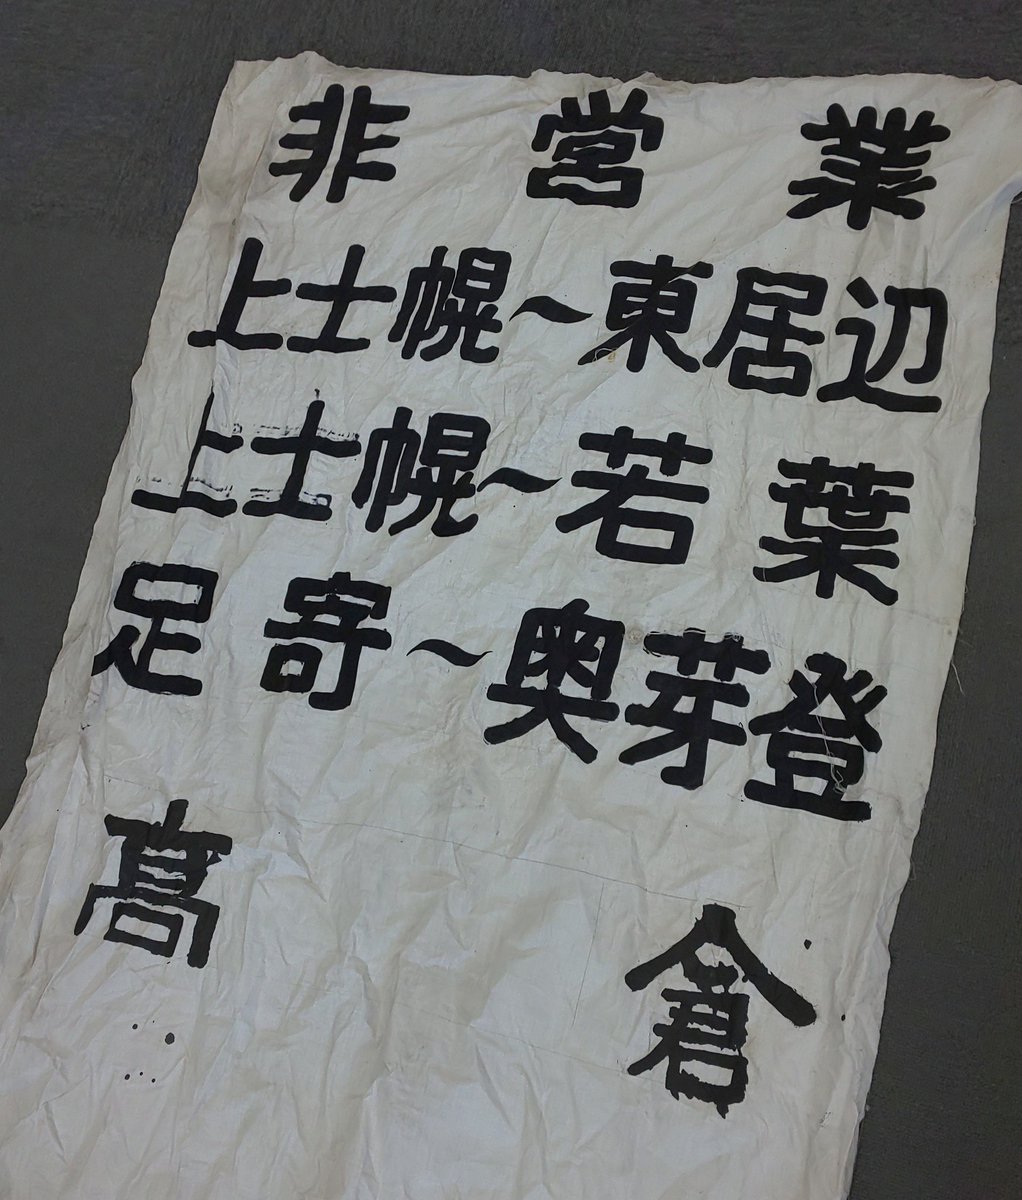 非営業
上士幌～東居辺
上士幌～若葉
足寄～奥芽登
髙倉